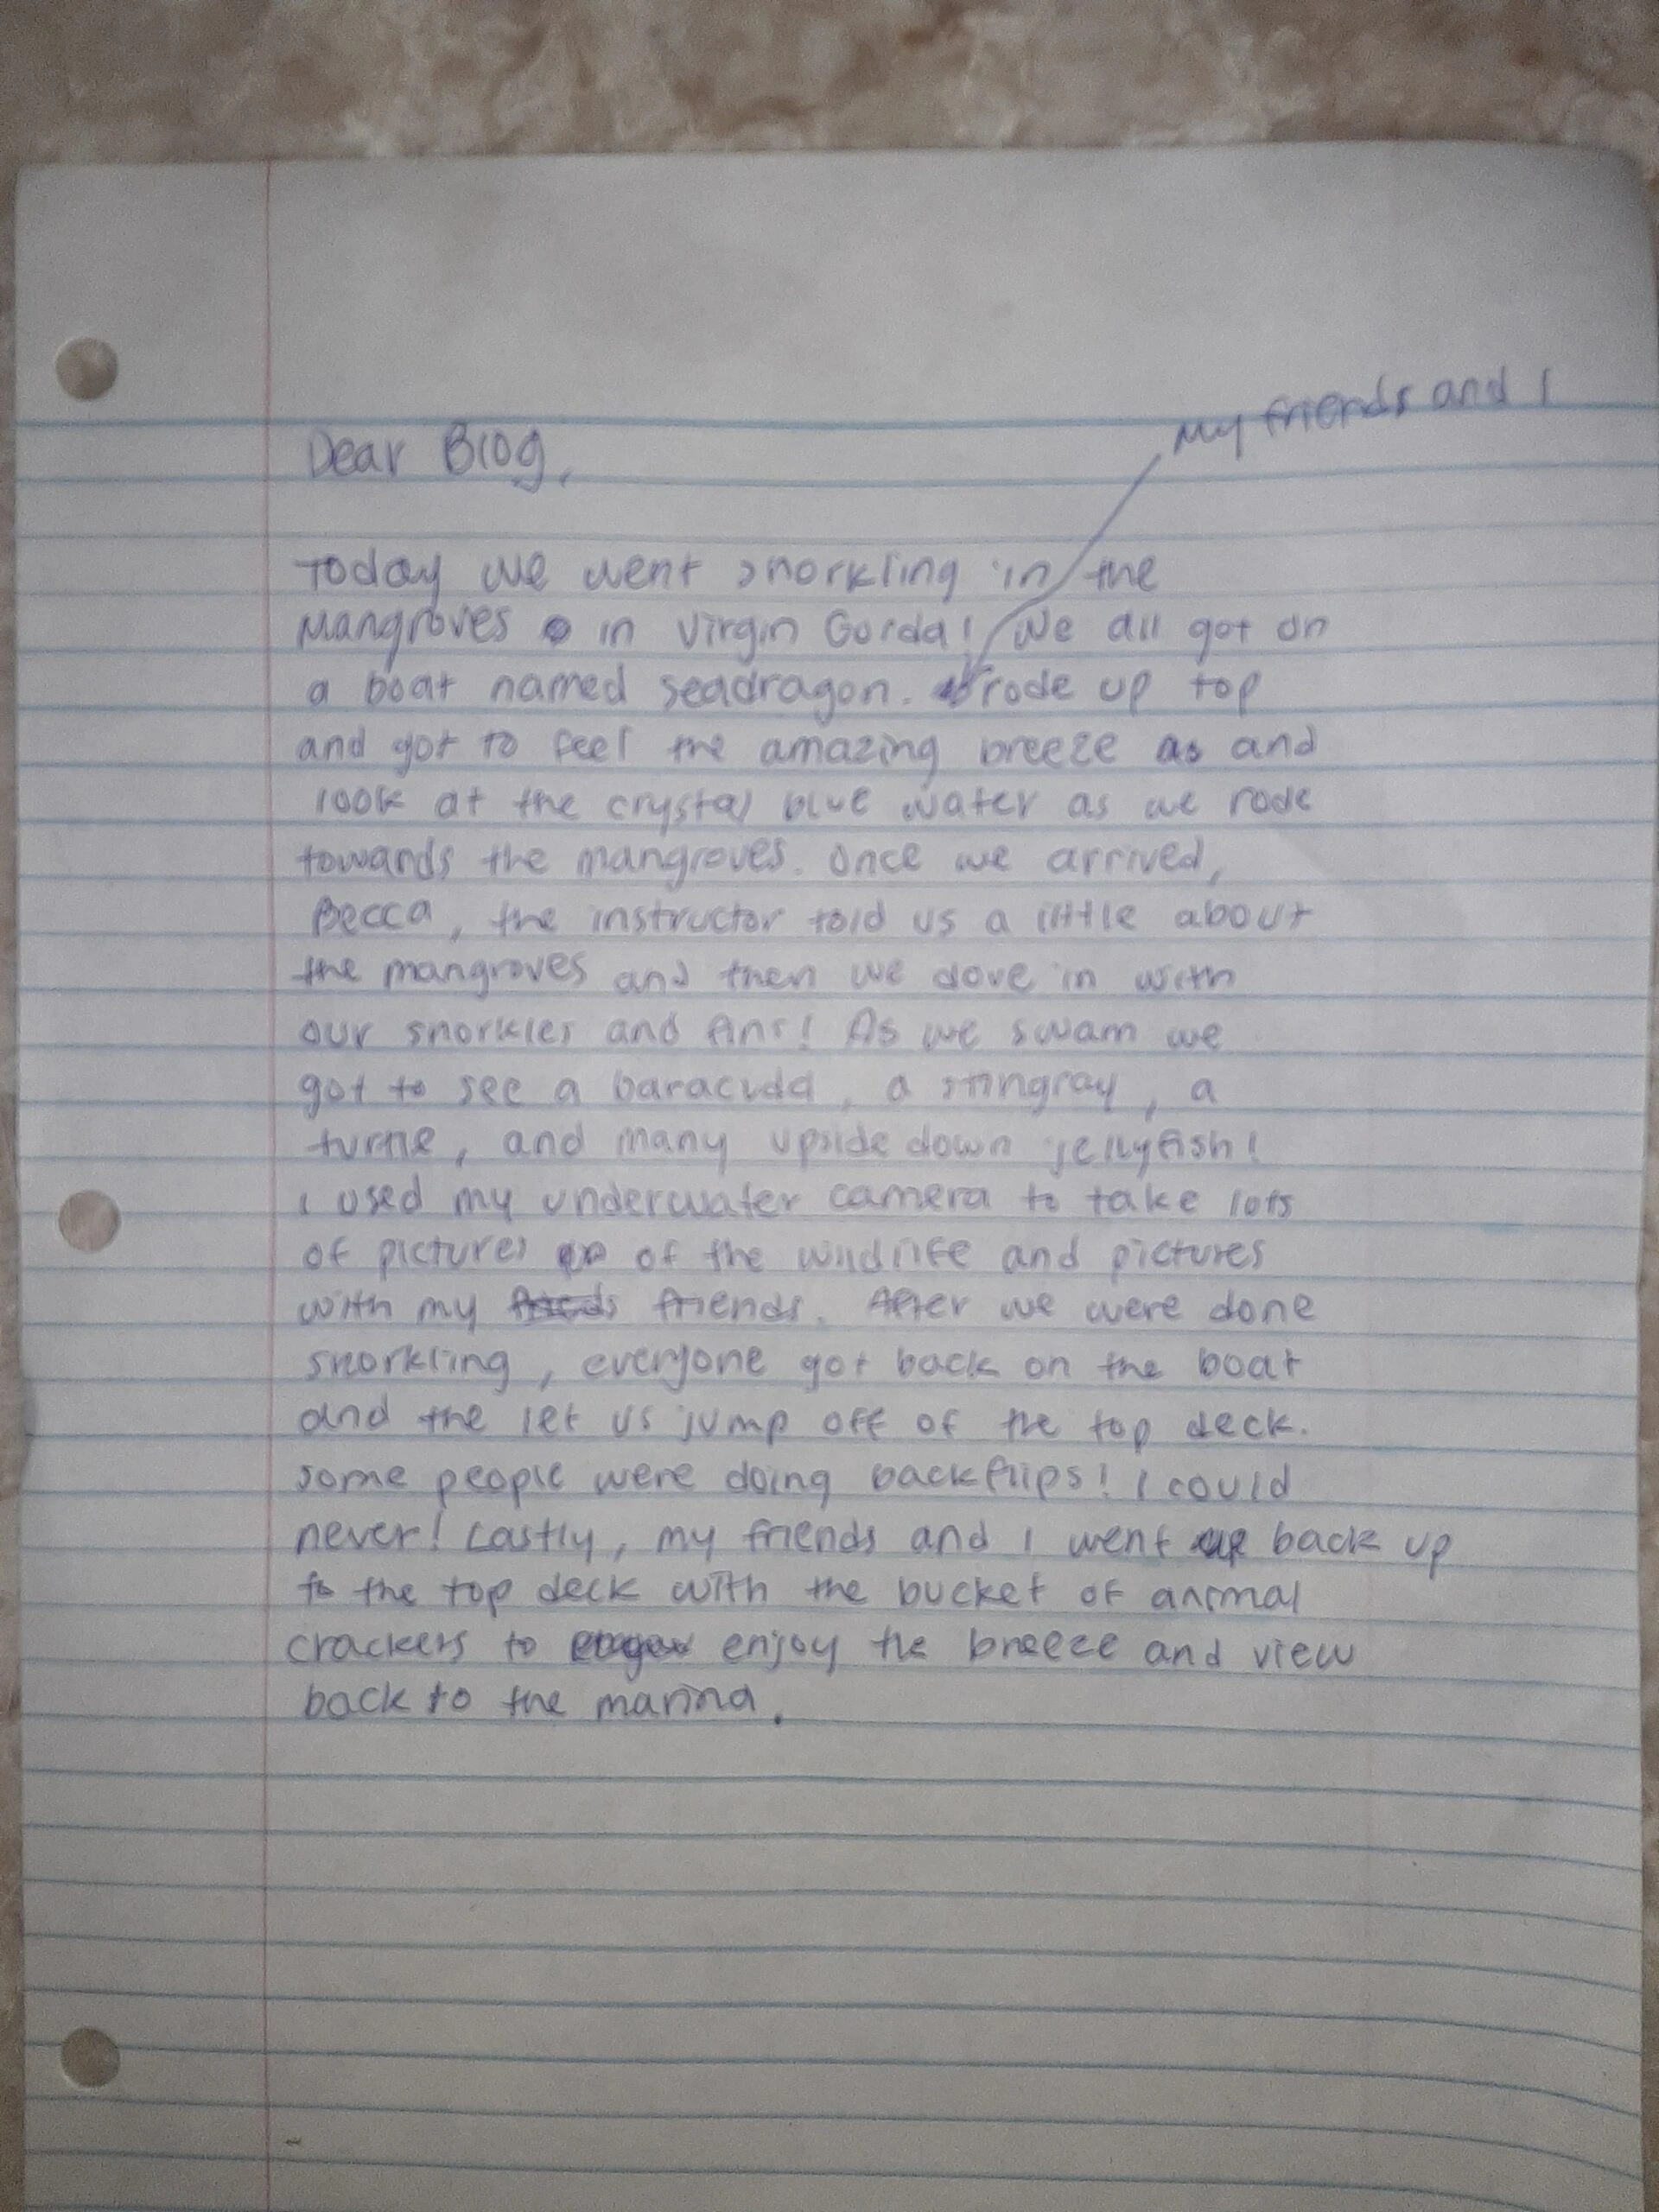 My friends and I
Dear Blog,
Today we went snorkling in the
Mangroves in Virgin Gorda! We all got on
a boat named seadragon. rode up top
and got to feel the amazing breeze as and
look at the crystal blue water as we rode
towards the mangroves. Once we arrived,
Becca, the instructor told us a little about
the mangroves and then we dove in with
our snorkles and fins! As we swam we
got to see a baracuda, a stingray, a
turtle, and many upside down jellyfish!
I used my underwater camera to take lots
of pictures of the wildlife and pictures
with my friends. After we were done
snorkling, everyone got back on the boat
and the let us jump off of the top deck.
some people were doing backflips! I could
never! Lastly, my friends and I went back up
to the top deck with the bucket of animal
crackers to enjoy the breeze and view
back to the marina.